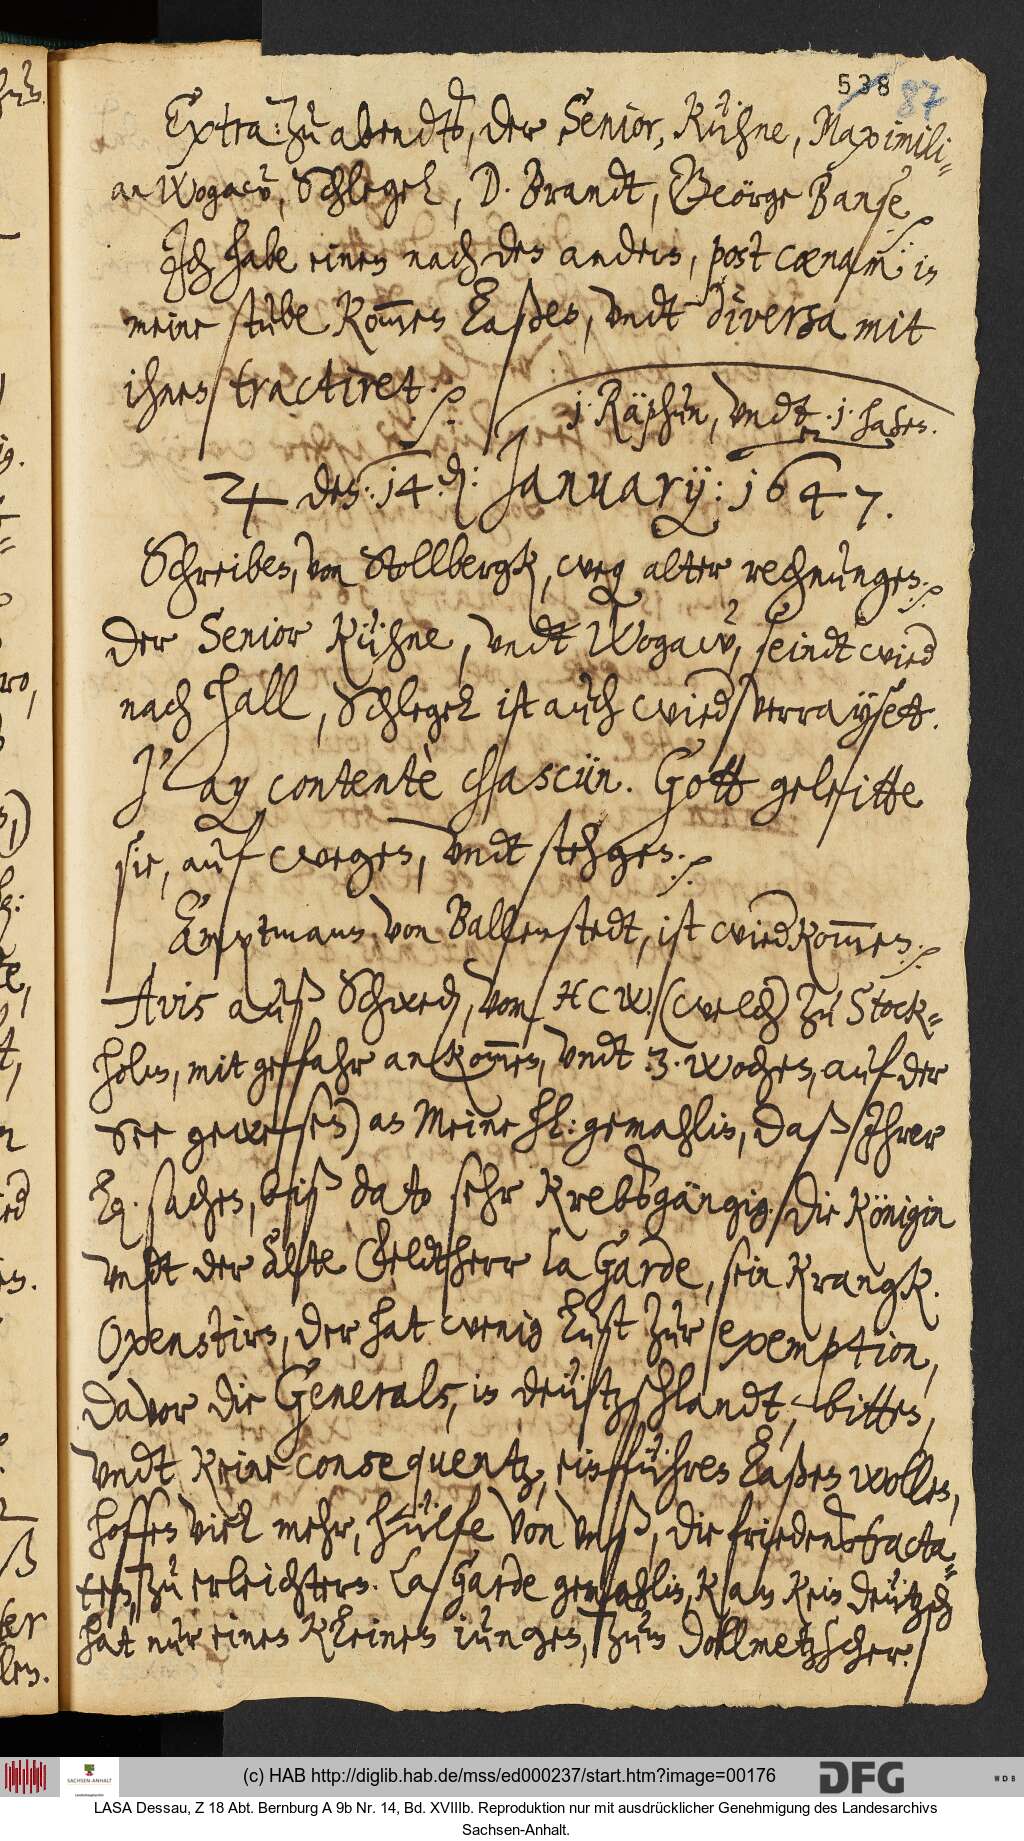 538 87
Extra: Zu abendts, der Senior, Kühne, Maximili-
an Wogaw, Schlegel, D. Brandt, George Banse.
Ich habe einen nach dem andern, post coenam: in
meine stube kommen laßen, undt diversa mit
ihnen tractiret.
1. Räphun, undt 1. hasen.
♃ den: 14. d: January: 1647.
Schreiben, von Stollbergk, weg alter rechnungen.
Der Senior Kühne, undt Wogaw, seindt wied
nach Hall, Schlegel ist auch wied verrayset.
J'ay contentè chascün. Gott geleitte
sie, auf wegen, undt stehgen.
Amptmann von Ballenstedt, ist wiedkommen.
Avis auß Schwed, von HCW. (welch zu Stock-
holm, mit gefahr ankommen, undt 3. wochen, auf der
See gewesen) an Meine hl: gemahlin, daß Ihrer
Lg. sachen, biß dato sehr krebsgängig. die Königin
undt der alte Geldtherr la Garde, sein krangk.
Oxenstirn, der hat wenig lust zur exemption,
davor die Generals, in deutzschlandt, bitten,
undt keine consequentz, einführen laßen wollen,
hoffen viel mehr, hülfe von unß, die friedenstracta-
ten, zu erleichtern. La Garde gemahlin, kan kein deützsch
hat nur einen kleinen iungen, zum dollmetzscher.
(c) HAB http://diglib.hab.de/mss/ed000237/start.htm?image=00176
SACHSEN-ANHALT
DFG
WDB
LASA Dessau, Z 18 Abt. Bernburg A 9b Nr. 14, Bd. XVIIIb. Reproduktion nur mit ausdrücklicher Genehmigung des Landesarchivs
Sachsen-Anhalt.